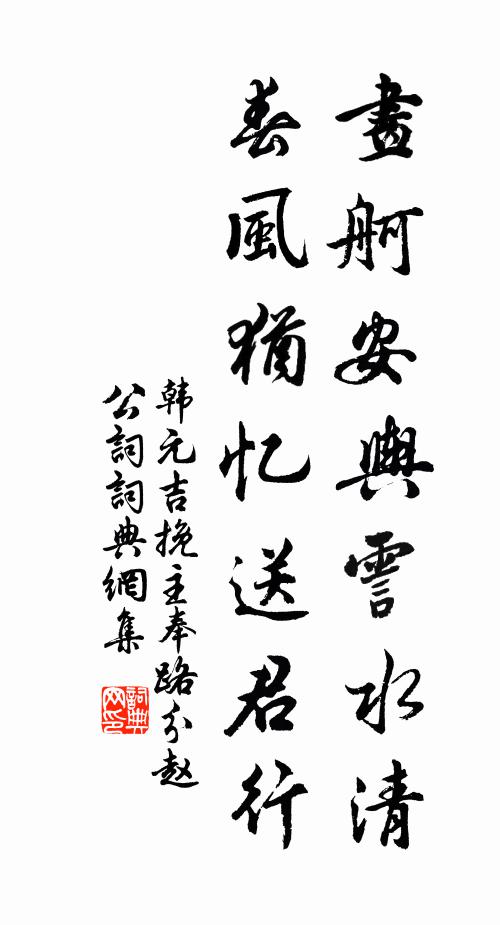 畫舸安輿霅水清
春風猶忆送君行
韩元吉挽主奉路分赵
公詞詞典網集
詞典
网印